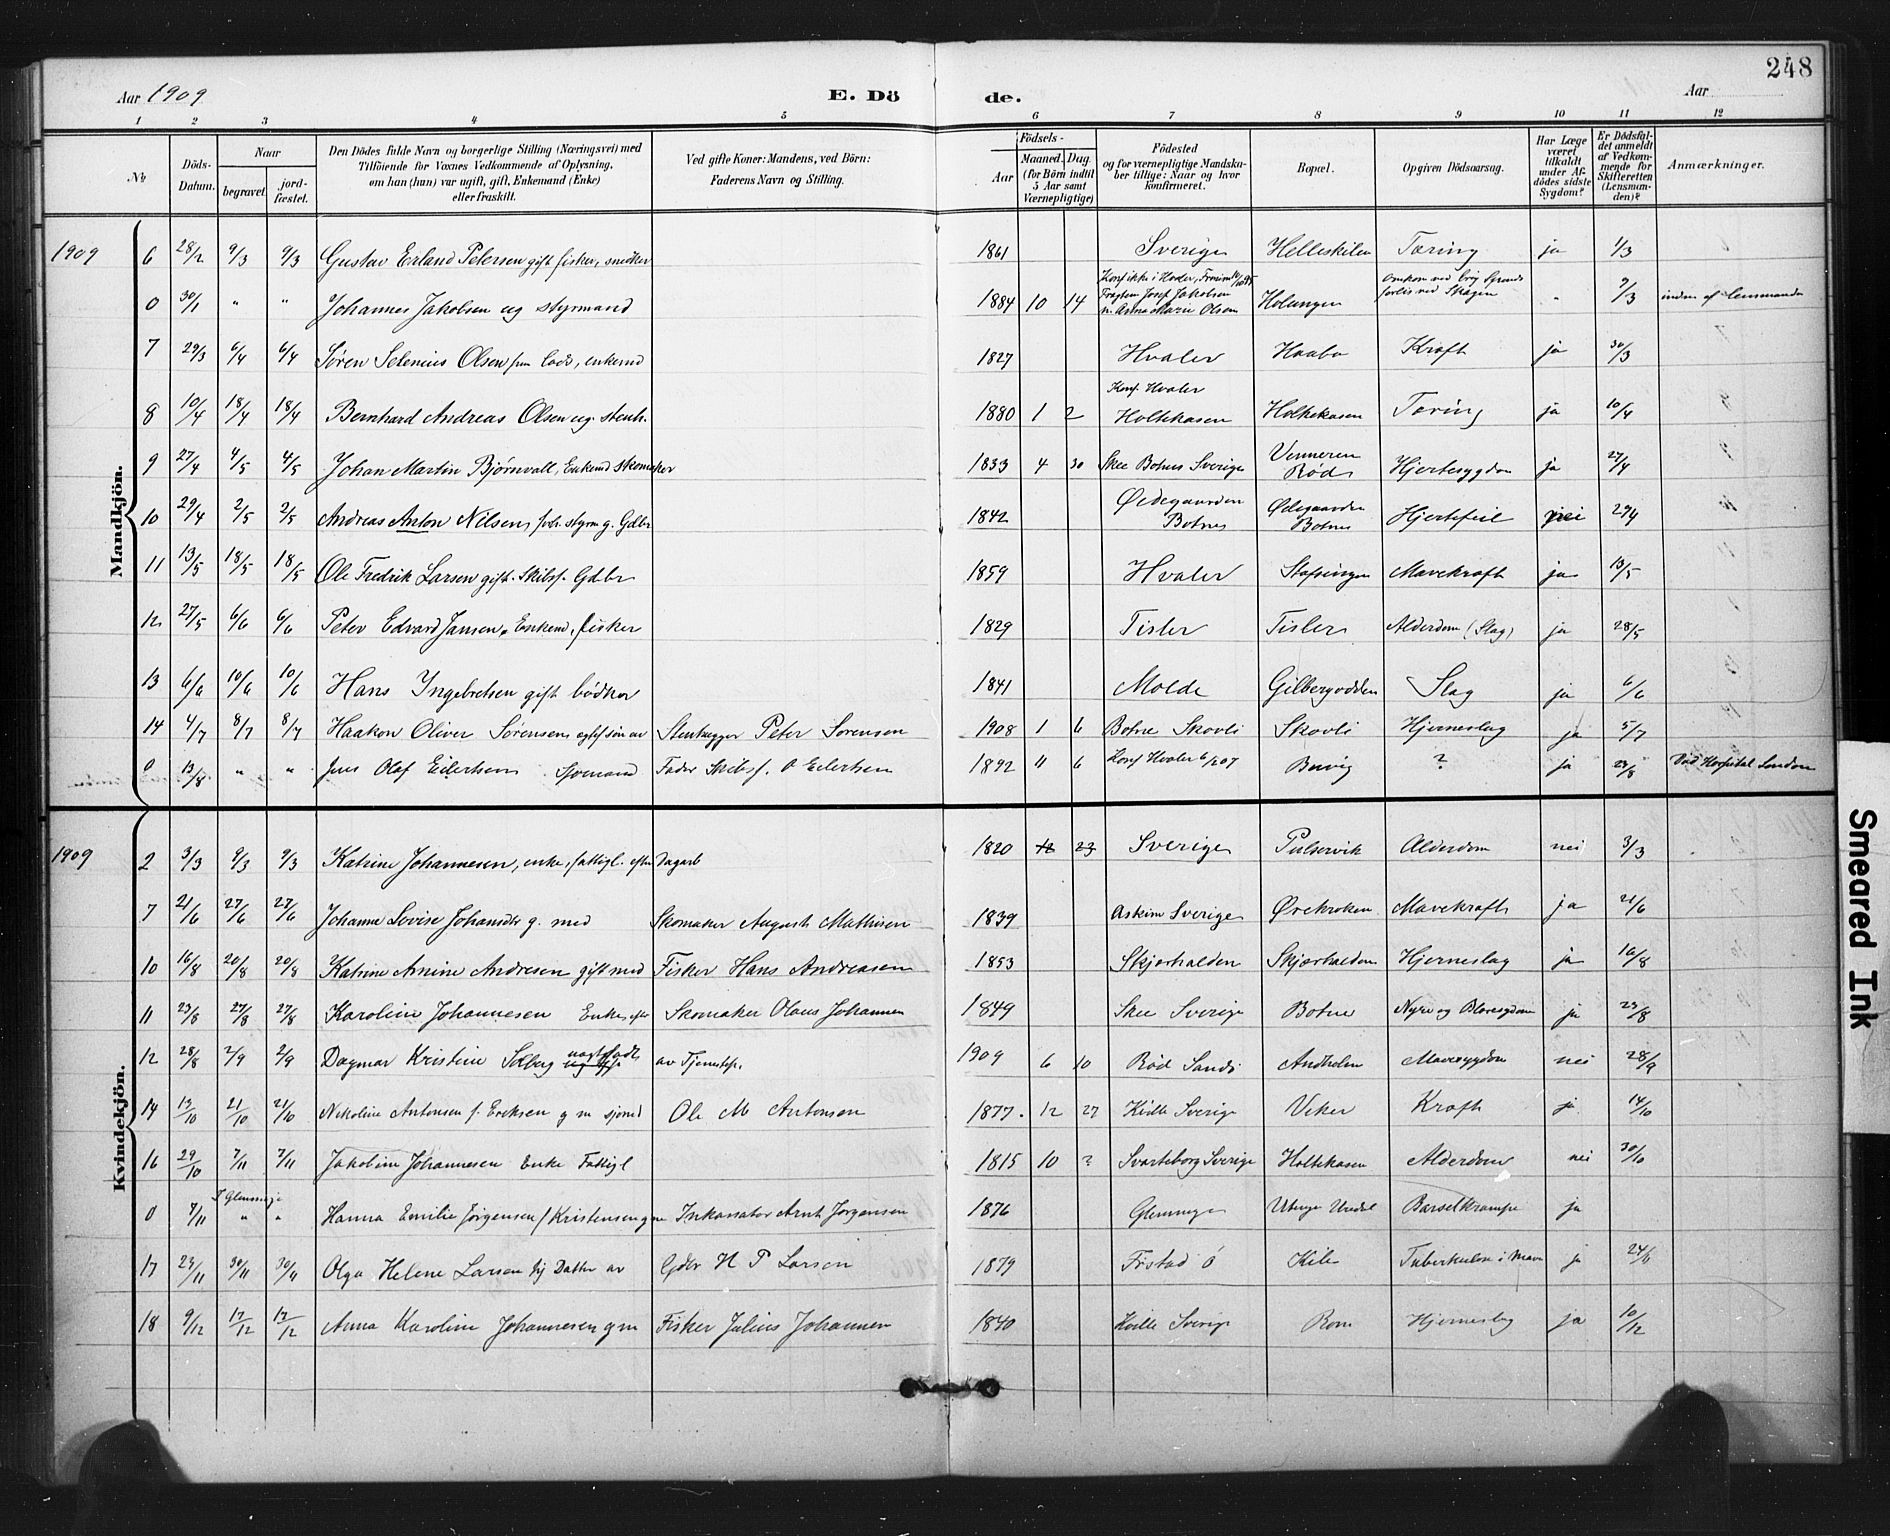 248
Aar 1909 E. Dö de. Aar
1 2 3 4 5 6 7 8 9 10 11 12
№
Döds-Datum.
Naar
begravet.
jord-fæstet.
Den Dödes fulde Navn og borgerlige Stilling (Næringsvei) med
Tilföiende for Voxnes Vedkommende af Oplysning,
om han (hun) var ugift, gift, Enkemand (Enke)
eller fraskilt.
Ved gifte Koner: Mandens, ved Börn:
Faderens Navn og Stilling.
Födsels-
Aar
Maaned. Dag.
(for Börn indtil
5 Aar samt
Værnepligtige)
Födested
og for værnepligtige Mandska-
ber tillige: Naar og hvor
konfirmeret.
Bopæl.
Opgiven Dödsaarsag.
Har Læge
været
tilkaldt
under Af-
dödes sidste
Sygdom?
Er Dödsfal-
det anmeldt
af Vedkom-
mende for
Skifteretten
(Lensman-
den)?
Anmærkninger.
Mandkjön.
1909 6 28/2 9/3 9/3 Gustav Erland Petersen gift fisker, snedker 1861 Sverige Helleskilen Tæring ja 1/3
0 30/1 " " Johannes Jakobsen ug styrmand 1884 10 14 Josef Jakobsen Anna Marie Olsen Holungen forlis ved Skagen " 9/3 indm af lensmanden
7 29/3 6/4 6/4 Søren Selenius Olsen lods, enkemd 1827 Hvaler Haabo Kræft ja 30/3
8 10/4 18/4 18/4 Bernhard Andreas Olsen ug. stenh. 1880 1 2 Konf. Hvaler Holtekasen Holtekasen Tæring ja 10/4
9 27/4 4/5 4/5 Johan Martin Bjørnvall, Enkemd skomaker 1833 4 30 Skee Bohus Sverige Røds Hjertesygdom ja 27/4
10 29/4 2/5 2/5 Andreas Anton Nilsen, styrm g. Gdbr 1842 Ødegaarden Botnes Ødegaarden Botnes Hjertefeil nei 29/4
11 13/5 18/5 18/5 Ole Fredrik Larsen gift. Skibsf. Gdbr 1859 Hvaler Stafsengen Mavekræft ja 13/5
12 27/5 6/6 6/6 Peter Edvard Jansen, Enkemd, fisker 1829 Tisler Tisler Alderdom (Slag) ja 28/5
13 6/6 10/6 10/6 Hans Ingebretsen gift bødker 1841 Molde Gilbergodden Slag ja 6/6
14 4/7 8/7 8/7 Haakon Oliver Sørensen egtef søn av Stenhugger Peter Sørensen 1908 1 6 Botne Skovli Skovli Hjerneslag ja 5/7
0 13/8 " " Jens Olaf Eilertsen Sjømand Fader Skibsf. O Eilertsen 1892 11 6 Konf Hvaler 6/10 07 ? ja 23/8 Død Hospital London
Kvindekjön.
1909 2 3/3 9/3 9/3 Katrine Johannesen, enke, fattigl. efter Dagarb 1820 12 23 Sverige Pulservik Alderdom nei 3/3
7 21/6 27/6 27/6 Johanne Lovise Johansdtr g. med Skomaker August Mathisen 1839 Askim Sverige Ørekroken Mavekræft ja 21/6
10 16/8 20/8 20/8 Katrine Amine Andresen gift med Fisker Hans Andreasen 1853 Skjærhalden Skjærhalden Hjerneslag ja 16/8
11 23/8 27/8 27/8 Karoline Johannesen Enke efter Skomaker Olaus Johannsen 1849 Skee Sverige Botne Nyre og Blæresygdom ja 23/8
12 28/8 2/9 2/9 Dagmar Kristine Solberg av Tjenestep. 1909 6 10 Rød Sandø Andholm Mavesygdom nei 28/9
14 13/10 21/10 21/10 Nikoline Antonsen f. Eriksen g m sjømd Ole M Antonsen 1877. 12 27 Kville Sverige Viker Kræft ja 14/10
16 29/10 7/11 7/11 Jakobine Johannesen Enke Fattigl 1815 10 ? Svarteborg Sverige Holtekasen Alderdom nei 30/10
0 7/11 I Glemminge " " Hanna Emilie Jørgensen f Kristensen g m Inkassator Arnt Jørgensen 1876 Glemminge Barselkrampe ja
17 23/11 30/11 30/11 Olga Helene Larsen Datter av Gdbr H P Larsen 1879 Fr.stad Ø Kile Tuberkulose i Mave ja 24/11
18 9/12 17/12 17/12 Anna Karoline Johannesen g m Fisker Julius Johansen 1840 Kville Sverige Rom Hjerneslag ja 10/12
Smeared Ink